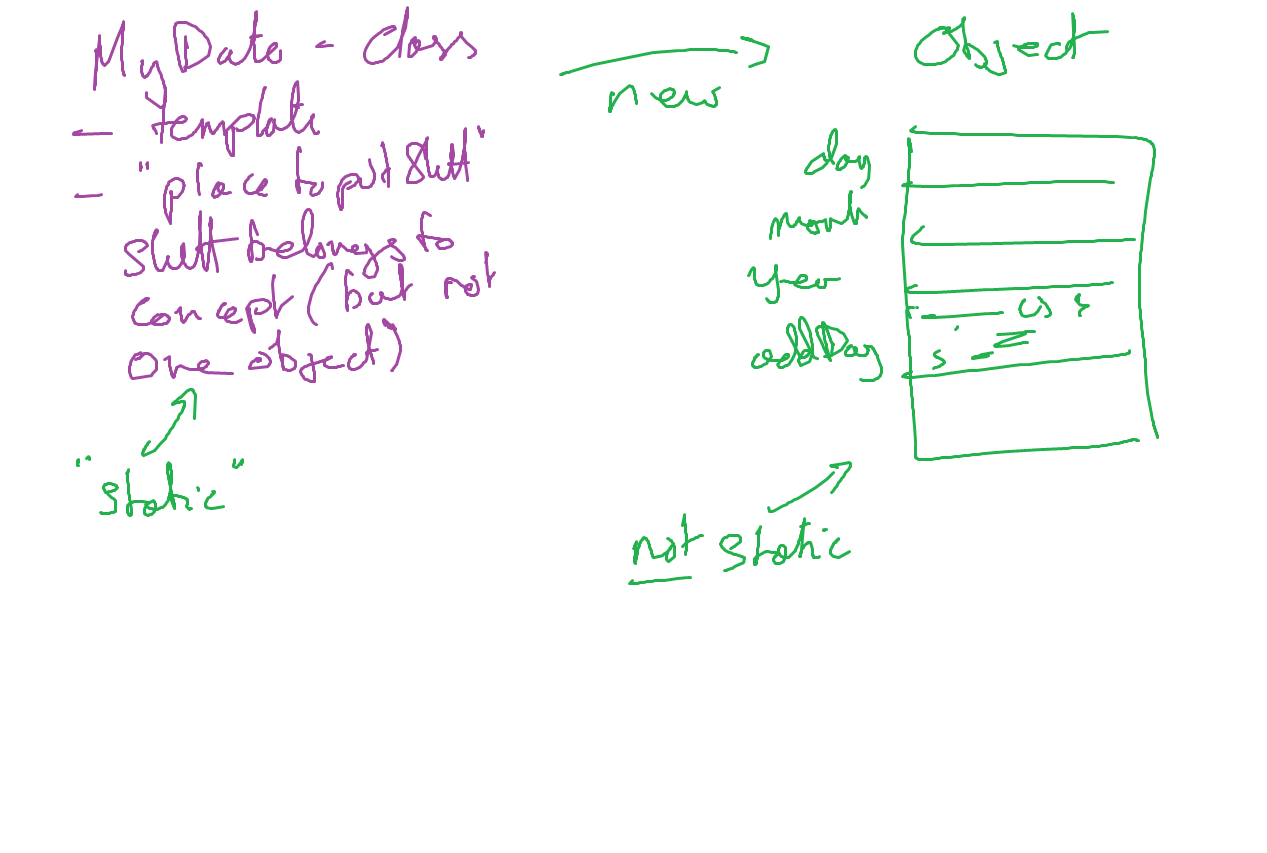 MyDate - Class
- Template
- "place to put stuff"
stuff belongs to
concept (but not
one object)
"static"
new
Object
day
month
year
addDay
not static